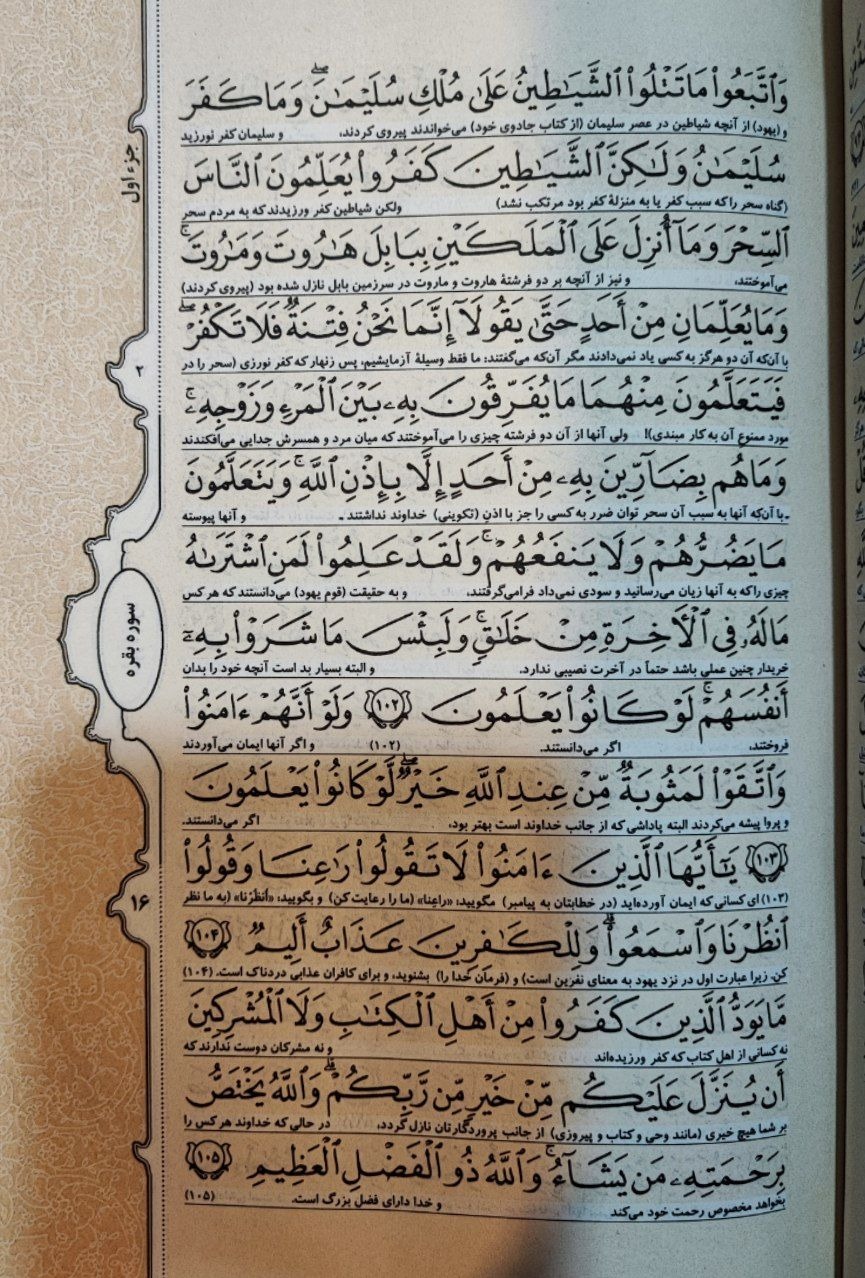 وَٱتَّبَعُوا۟ مَا تَتْلُوا۟ ٱلشَّيَـٰطِينُ عَلَىٰ مُلْكِ سُلَيْمَـٰنَ ۖ وَمَا كَفَرَ
و (یهود) از آنچه شیاطین در عصر سلیمان (از کتاب جادوی خود) می‌خواندند پیروی کردند، و سلیمان کفر نورزید
سُلَيْمَـٰنُ وَلَـٰكِنَّ ٱلشَّيَـٰطِينَ كَفَرُوا۟ يُعَلِّمُونَ ٱلنَّاسَ
(گناه سحر را که سبب کفر یا به منزلهٔ کفر بود مرتکب نشد) ولکن شیاطین کفر ورزیدند که به مردم سحر
ٱلسِّحْرَ وَمَآ أُنزِلَ عَلَى ٱلْمَلَكَيْنِ بِبَابِلَ هَـٰرُوتَ وَمَـٰرُوتَ ۚ
می‌آموختند، و نیز از آنچه بر دو فرشتهٔ هاروت و ماروت در سرزمین بابل نازل شده بود (پیروی کردند)
وَمَا يُعَلِّمَانِ مِنْ أَحَدٍ حَتَّىٰ يَقُولَآ إِنَّمَا نَحْنُ فِتْنَةٌ فَلَا تَكْفُرْ ۖ
با آن‌که آن دو هرگز به کسی یاد نمی‌دادند مگر آن‌که می‌گفتند: ما فقط وسیلهٔ آزمایشیم، پس زنهار که کفر نورزی (سحر را در
فَيَتَعَلَّمُونَ مِنْهُمَا مَا يُفَرِّقُونَ بِهِۦ بَيْنَ ٱلْمَرْءِ وَزَوْجِهِۦ ۚ
مورد ممنوع آن به کار مبندی)! ولی آنها از آن دو فرشته چیزی را می‌آموختند که میان مرد و همسرش جدایی می‌افکندند
وَمَا هُم بِضَآرِّينَ بِهِۦ مِنْ أَحَدٍ إِلَّا بِإِذْنِ ٱللَّهِ ۚ وَيَتَعَلَّمُونَ
ـ با آن‌که آنها به سبب آن سحر توان ضرر به کسی را جز با اذن (تکوینی) خداوند نداشتند ـ و آنها پیوسته
مَا يَضُرُّهُمْ وَلَا يَنفَعُهُمْ ۚ وَلَقَدْ عَلِمُوا۟ لَمَنِ ٱشْتَرَىٰهُ
چیزی را که به آنها زیان می‌رسانید و سودی نمی‌داد فرامی‌گرفتند، و به حقیقت (قوم یهود) می‌دانستند که هر کس
مَا لَهُۥ فِى ٱلْـَٔاخِرَةِ مِنْ خَلَـٰقٍ ۚ وَلَبِئْسَ مَا شَرَوْا۟ بِهِۦٓ
خریدار چنین عملی باشد حتماً در آخرت نصیبی ندارد. و البته بسیار بد است آنچه خود را بدان
أَنفُسَهُمْ ۚ لَوْ كَانُوا۟ يَعْلَمُونَ ﴿١٠٢﴾ وَلَوْ أَنَّهُمْ ءَامَنُوا۟
فروختند، اگر می‌دانستند. (۱۰۲) و اگر آنها ایمان می‌آوردند
وَٱتَّقَوْا۟ لَمَثُوبَةٌ مِّنْ عِندِ ٱللَّهِ خَيْرٌ ۖ لَّوْ كَانُوا۟ يَعْلَمُونَ
و پروا پیشه می‌کردند البته پاداشی که از جانب خداوند است بهتر بود، اگر می‌دانستند.
﴿١٠٣﴾ يَـٰٓأَيُّهَا ٱلَّذِينَ ءَامَنُوا۟ لَا تَقُولُوا۟ رَٰعِنَا وَقُولُوا۟
(۱۰۳) ای کسانی که ایمان آورده‌اید (در خطابتان به پیامبر) مگویید: «راعِنا» (ما را رعایت کن) و بگویید: «اُنظُرْنا» (به ما نظر
ٱنظُرْنَا وَٱسْمَعُوا۟ ۗ وَلِلْكَـٰفِرِينَ عَذَابٌ أَلِيمٌ ﴿١٠٤﴾
کن، زیرا عبارت اول در نزد یهود به معنای نفرین است) و (فرمان خدا را) بشنوید، و برای کافران عذابی دردناک است. (۱۰۴)
مَّا يَوَدُّ ٱلَّذِينَ كَفَرُوا۟ مِنْ أَهْلِ ٱلْكِتَـٰبِ وَلَا ٱلْمُشْرِكِينَ
نه کسانی از اهل کتاب که کفر ورزیده‌اند و نه مشرکان دوست ندارند که
أَن يُنَزَّلَ عَلَيْكُم مِّنْ خَيْرٍ مِّن رَّبِّكُمْ ۗ وَٱللَّهُ يَخْتَصُّ
بر شما هیچ خیری (مانند وحی و کتاب و پیروزی) از جانب پروردگارتان نازل گردد، در حالی که خداوند هر کس را
بِرَحْمَتِهِۦ مَن يَشَآءُ ۚ وَٱللَّهُ ذُو ٱلْفَضْلِ ٱلْعَظِيمِ ﴿١٠٥﴾
بخواهد مخصوص رحمت خود می‌کند و خدا دارای فضل بزرگ است. (۱۰۵)
جزء اول
۲
سوره بقره
۱۶